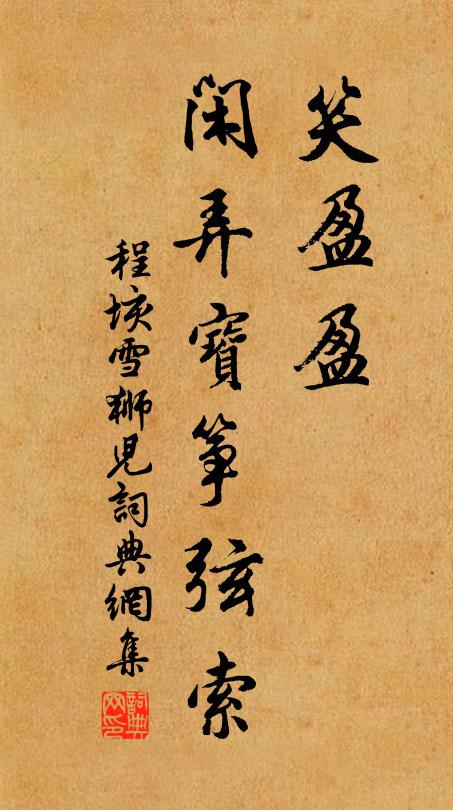 笑盈盈
閑弄寶箏弦索
程垓雪獅兒詞典網集
詞典网印